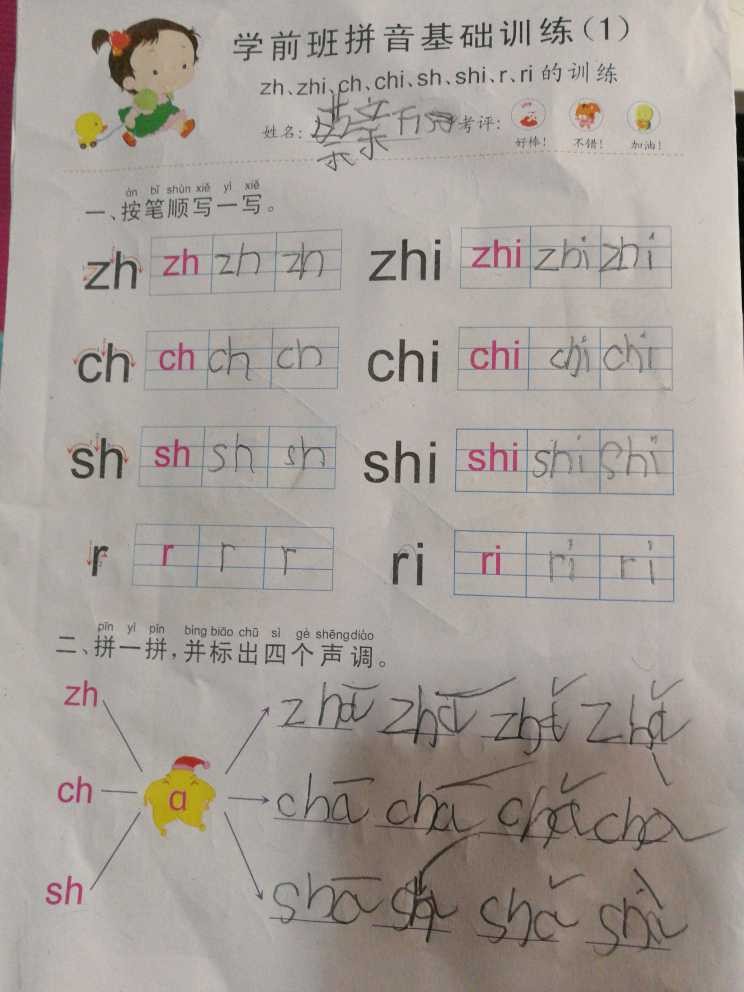 学前班拼音基础训练(1)
zh、zhi、ch、chi、sh、shi、r、ri的训练
姓名: 考评:
好棒! 不错! 加油!
àn bǐ shùn xiě yì xiě
一、按笔顺写一写。
zh zh zh zh zhi zhi zhi zhi
ch ch ch ch chi chi chi chi
sh sh sh sh shi shi shi shi
r r r r ri ri ri ri
pīn yì pīn bìng biāo chū sì gè shēng diào
二、拼一拼,并标出四个声调。
zh zhā zhá zhǎ zhǎ
ch a chā chá chǎ chà
sh shā shá shǎ shà